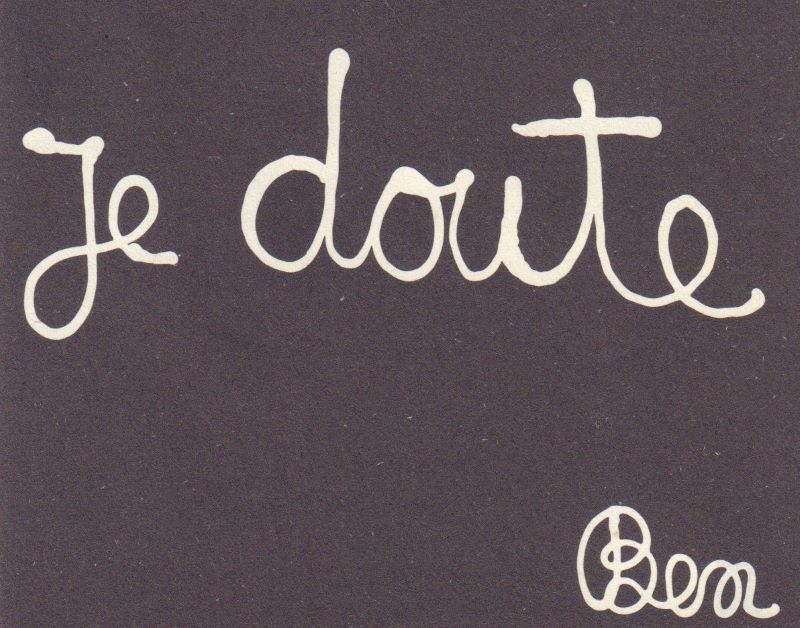 Je doute
Ben